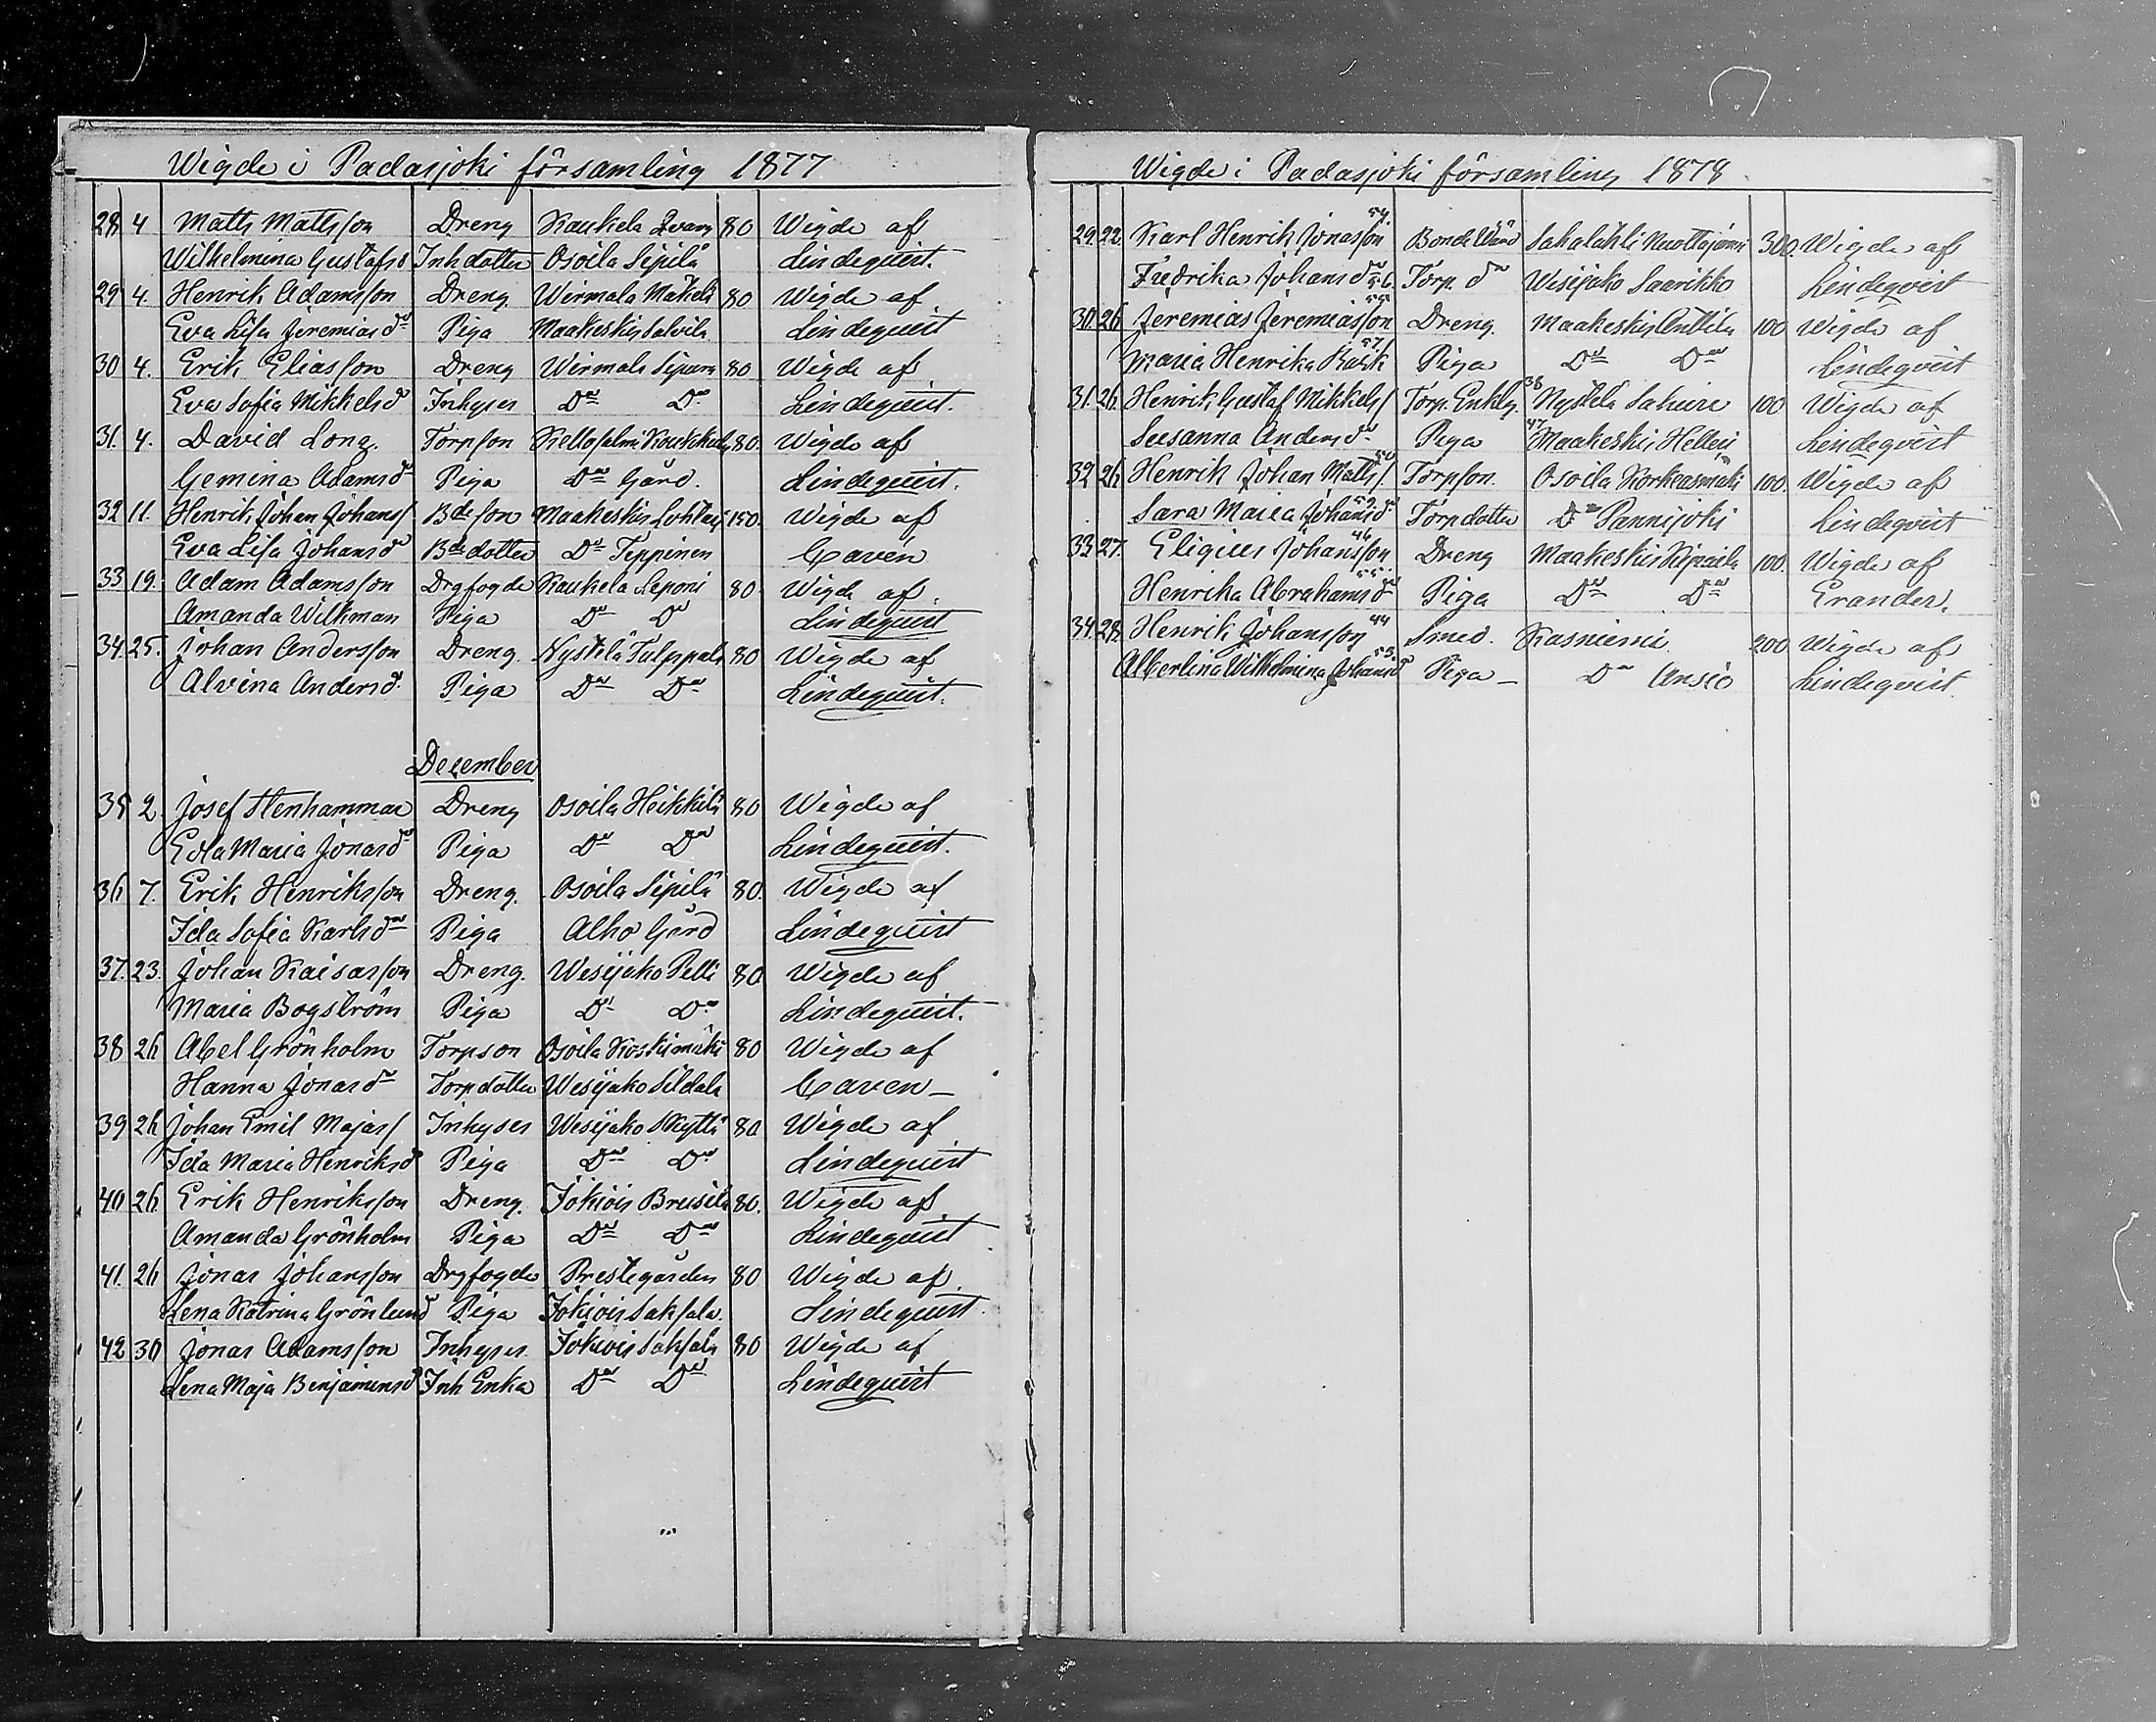 Wigde i Padasjoki församling 1877
28 4 Matts Mattsson Dreng Kaukela Qvarn 80 Wigde af
Wilhelmina Gustafsd Inhdotter Osoila Sipilä Lindeqvist.
29 4. Henrik Adamsson Dreng Wirmala Mäkelä 80 Wigde af
Eva Lisa Jeremiasdr Piga Maakeskis Lindeqvist
30 4. Erik Eliasson Dreng Wirmala 80 Wigde af
Eva Sofia Mikkelsd Inhyses Do Do Lindeqvist.
31. 4. David Long. Torpson Kellosalmi 80. Wigde af
Gemina Adamsdr Piga Do Gård. Lindeqvist.
32 11. Henrik Johan Johans/ Bdeson Maakeskis 150. Wigde af
Eva Lisa Johansdr Bdedotter Do Teppinen Cavén
33 19. Adam Adamsson Drgfogde Kaukela Seponi 80. Wigde af.
Amanda Wilkman Piga Do Do Lindeqvist
34. 25. Johan Andersson Dreng. Nystölä Tulppala 80 Wigde af
Alvina Andersd. Piga Do Do Lindeqvist.
December
35 2. Josef Stenhammar Dreng Osoila Heikkilä 80 Wigde af
Edla Maria Jonasdr Piga Do Do Lindeqvist.
36 7. Erik Henriksson Dreng. Osoila Sipilä 80. Wigde af
Ida Sofia Karlsdr Piga Alho Gård Lindeqvist
37. 23. Johan Kaisasson Dreng. Wesijako Pelli 80 Wigde af
Maria Bogström Piga Do Do Lindeqvist.
38 26 Abel Grönholm Torpson Osoila Koskimäki 80 Wigde af
Hanna Jonasdr Torpdotter Wesijako Cavén –
39 26 Johan Emil Majas/ Inhyses Wesijako Skyttä 80. Wigde af
Ida Maria Henriksd Piga Do Do Lindeqvist
40 26 Erik Henriksson Dreng. Jokiois Brusila 80. Wigde af
Amanda Grönholm Piga Do Do Lindeqvist
41. 26 Jonas Johansson Drgfogde Prestgården 80 Wigde af.
Lena Katrina Grönlund Piga Jokiois Saksala. Lindeqvist
42 30 Jonas Adamsson Inhyses Jokiois Saksala 80 Wigde af
Lena Maja Benjaminsd Inh Enka Do Do Lindeqvist
Wigde i Padasjoki församling 1878.
29. 22. Karl Henrik Jonasson 54. Bonde Sahalahti 300. Wigde af
Fredrika Johansdr 56. Torp. dr Wesijako Saarikko Lindeqvist
30. 26 Jeremias Jeremiasson 55 Dreng. Maakeskis Anttila 100 Wigde af
Maria Henrika Rask 57. Piga Do Do Lindeqvist
31. 26. Henrik Gustaf Mikkels/ Torp. Enklg. 38 Nystölä 100 Wigde af
Susanna Andersdr Piga 47 Maakeskis Lindeqvist
32 26 Henrik Johan Matts/ 50 Torpson. Osoila Korkeasmäki 100. Wigde af
Sara Maria Johansdr 59 Torpdotter Do Pannijoki Lindeqvist
33 27. Eligius Johansson 46 Dreng Maakeskis 100. Wigde af
Henrika Abrahamsdr 55. Piga Do Do Grander.
34. 28. Henrik Johansson 44 Smed. Kasniemi 200 Wigde af
Albertina Wilhelmina Johansd 53. Piga – Do Ansio Lindeqvist.